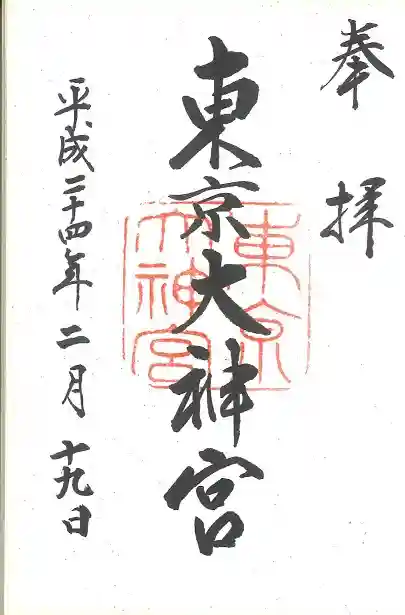 奉拝
東京大神宮
東京大神宮
平成二十四年二月十九日